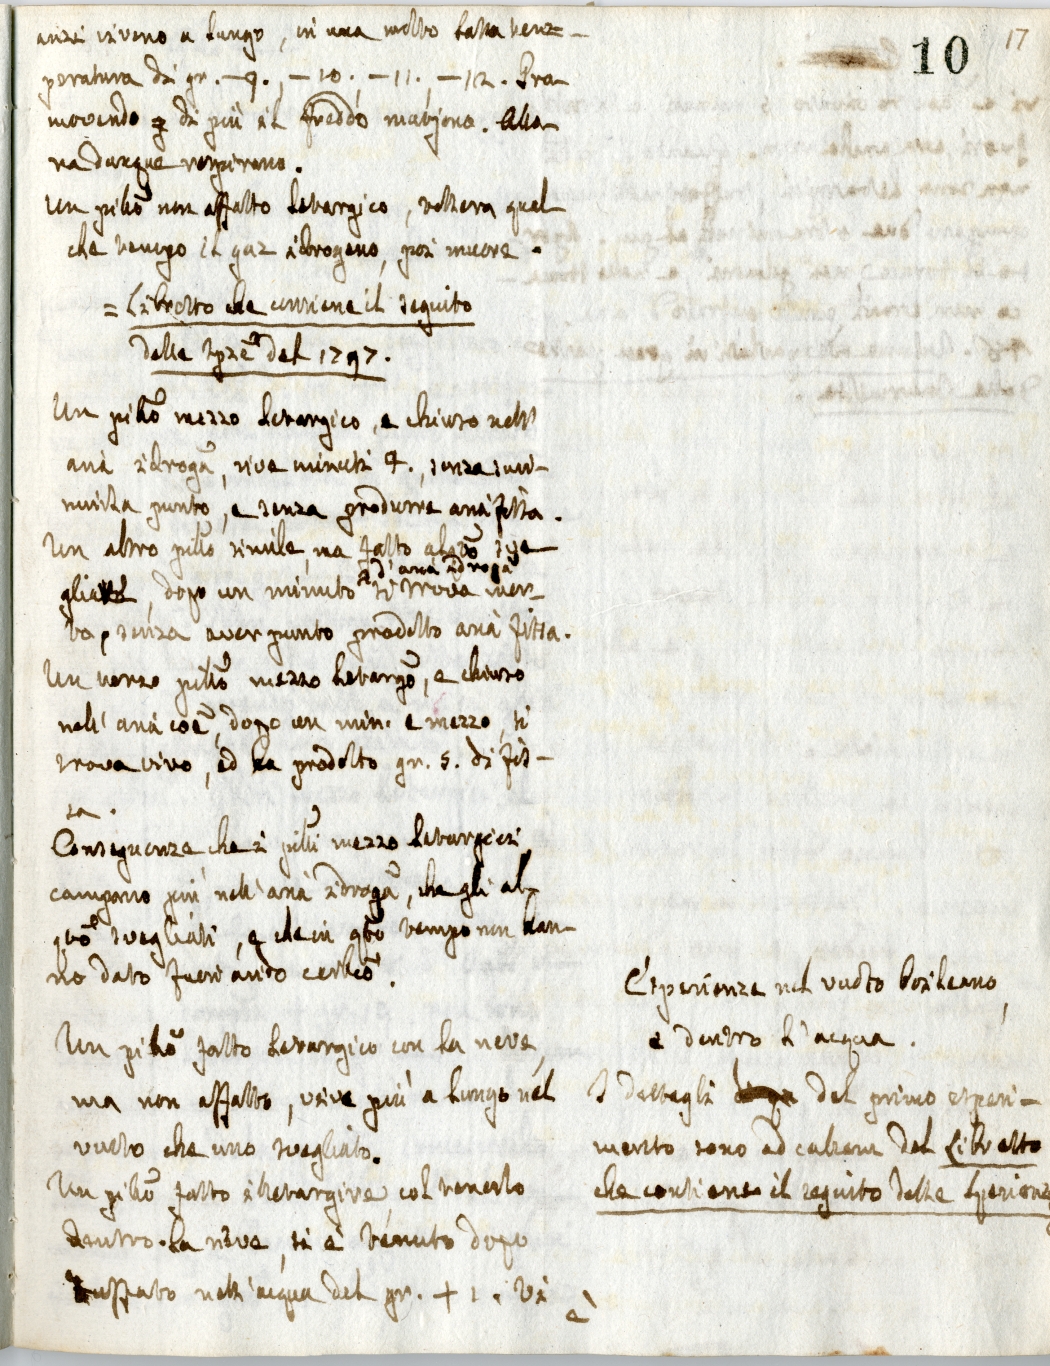 10
17
anzi vivono a lungo, in una molto bassa tem=
peratura di gr. -9., -10., -11., -12. Pro
movendo di più il freddo muojono. Allo
ra dunque respirano.
Un pillõ non affatto letargico, tollera qual
che tempo il gaz idrogeno, poi muore.
= Libretto che contiene il seguito
delle Spzẽ del 1797.
Un pillõ mezzo letargico, e chiuso nell'
aria idrogã, vive minuti 7., senza smi-
nuirla punto, e senza produrre aria fissa.
Un altro pillõ simile, ma fatto sve
gliare, dopo un minuto d'aria idrogã si trova mor-
to, senza aver punto prodotto aria fissa.
Un terzo pillõ mezzo letargõ, e chiuso
nell'aria coẽ, dopo un min. e mezzo, si
trova vivo, ed ha prodotto gr. 5. di fis-
sa.
Conseguenza che i pilli mezzo letargici,
campono più nell'aria idrogã, che gli al-
svegliati, e che in qsto tempo non han-
no dato fuori acido carbcõ.
Un pillõ fatto letargico con la neve,
ma non affatto, vive più a lungo nel
vuoto che uno svegliato.
Un pillõ fatto iletargire col tenerlo
dentro la neve, si è tenuto dopo
tuffato nell'acqua del gr. + 1. Vi
è
Esperienze nel vuoto boileano,
e dentro l'acqua.
I dettagli del primo esperi-
mento sono ad calcem del Libretto
che contiene il seguito delle Sperienze